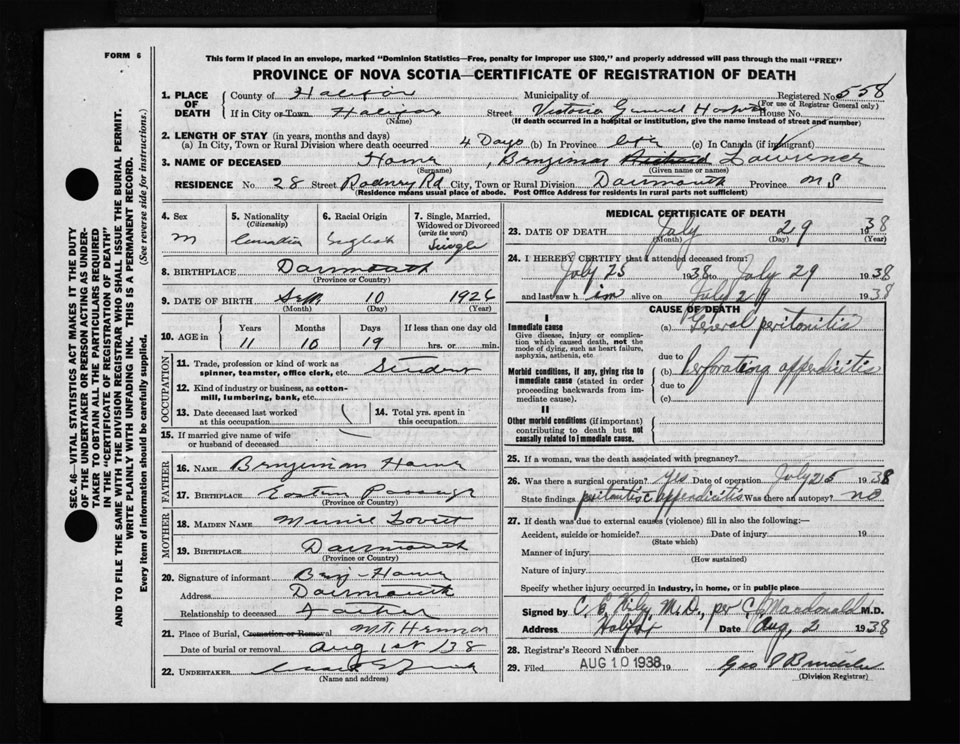 FORM 6
This form if placed in an envelope, marked "Dominion Statistics—Free, penalty for improper use $300," and properly addressed will pass through the mail "FREE"
PROVINCE OF NOVA SCOTIA—CERTIFICATE OF REGISTRATION OF DEATH
1. PLACE OF DEATH County of Halifax Municipality of Registered No. 558
(For use of Registrar General only)
If in City or Town Halifax Street Victoria General Hospital House No.
(Name) (If death occurred in a hospital or institution, give the name instead of street and number)
2. LENGTH OF STAY (in years, months and days)
(a) In City, Town or Rural Division where death occurred 4 Days (b) In Province Life (c) In Canada (if immigrant)
3. NAME OF DECEASED Benjiman Richard Lawrence
(Surname) (Given name or names)
RESIDENCE No. 28 Street Rodney Rd City, Town or Rural Division Dartmouth Province N S
(Residence means usual place of abode. Post Office Address for residents in rural parts not sufficient)
4. Sex M
5. Nationality (Citizenship) Canadian
6. Racial Origin English
7. Single, Married, Widowed or Divorced (write the word) Single
8. BIRTHPLACE Dartmouth
(Province or Country)
9. DATE OF BIRTH Sept 10 1926
(Month) (Day) (Year)
10. AGE in Years Months Days If less than one day old
11 10 19 hrs. or min.
OCCUPATION
11. Trade, profession or kind of work as spinner, teamster, office clerk, etc. Student
12. Kind of industry or business, as cotton-mill, lumbering, bank, etc.
13. Date deceased last worked at this occupation
14. Total yrs. spent in this occupation
15. If married give name of wife or husband of deceased
FATHER
16. NAME Benjiman
17. BIRTHPLACE Eastern Passage
(Province or Country)
MOTHER
18. MAIDEN NAME
19. BIRTHPLACE Dartmouth
(Province or Country)
20. Signature of informant Benj.
Address Dartmouth
Relationship to deceased Father
21. Place of Burial, Cremation or Removal Mt Hermon
Date of burial or removal Aug 1st/38
22. UNDERTAKER
(Name and address)
MEDICAL CERTIFICATE OF DEATH
23. DATE OF DEATH July 29 1938
(Month) (Day) (Year)
24. I HEREBY CERTIFY that I attended deceased from:
July 25 1938 to July 29 1938
and last saw him alive on July 29 1938
CAUSE OF DEATH
I
Immediate cause
Give disease, injury or complication which caused death, not the mode of dying, such as heart failure, asphyxia, asthenia, etc
(a) General peritonitis
due to
Morbid conditions, if any, giving rise to immediate cause (stated in order proceeding backwards from immediate cause)
(b) Perforating appendicitis
due to
(c)
II
Other morbid conditions (if important) contributing to death but not causally related to immediate cause.
25. If a woman, was the death associated with pregnancy?
26. Was there a surgical operation? yes Date of operation July 25 1938
State findings peritonitis & appendicitis Was there an autopsy? no
27. If death was due to external causes (violence) fill in also the following:—
Accident, suicide or homicide? Date of injury 19
(State which)
Manner of injury
(How sustained)
Nature of injury
Specify whether injury occurred in industry, in home, or in public place
Signed by C. E. M.D., per C Macdonald M.D.
Address Halifax Date Aug, 2 1938
28. Registrar's Record Number
29. Filed AUG 10 1938 19 Geo
(Division Registrar)
SEC. 46—VITAL STATISTICS ACT MAKES IT THE DUTY
OF THE UNDERTAKER OR PERSON ACTING AS UNDERTAKER
TO OBTAIN ALL THE PARTICULARS REQUIRED
IN THE "CERTIFICATE OF REGISTRATION OF DEATH"
AND TO FILE THE SAME WITH THE DIVISION REGISTRAR WHO SHALL ISSUE THE BURIAL PERMIT.
WRITE PLAINLY WITH UNFADING INK. THIS IS A PERMANENT RECORD.
Every item of information should be carefully supplied. (See reverse side for instructions.)